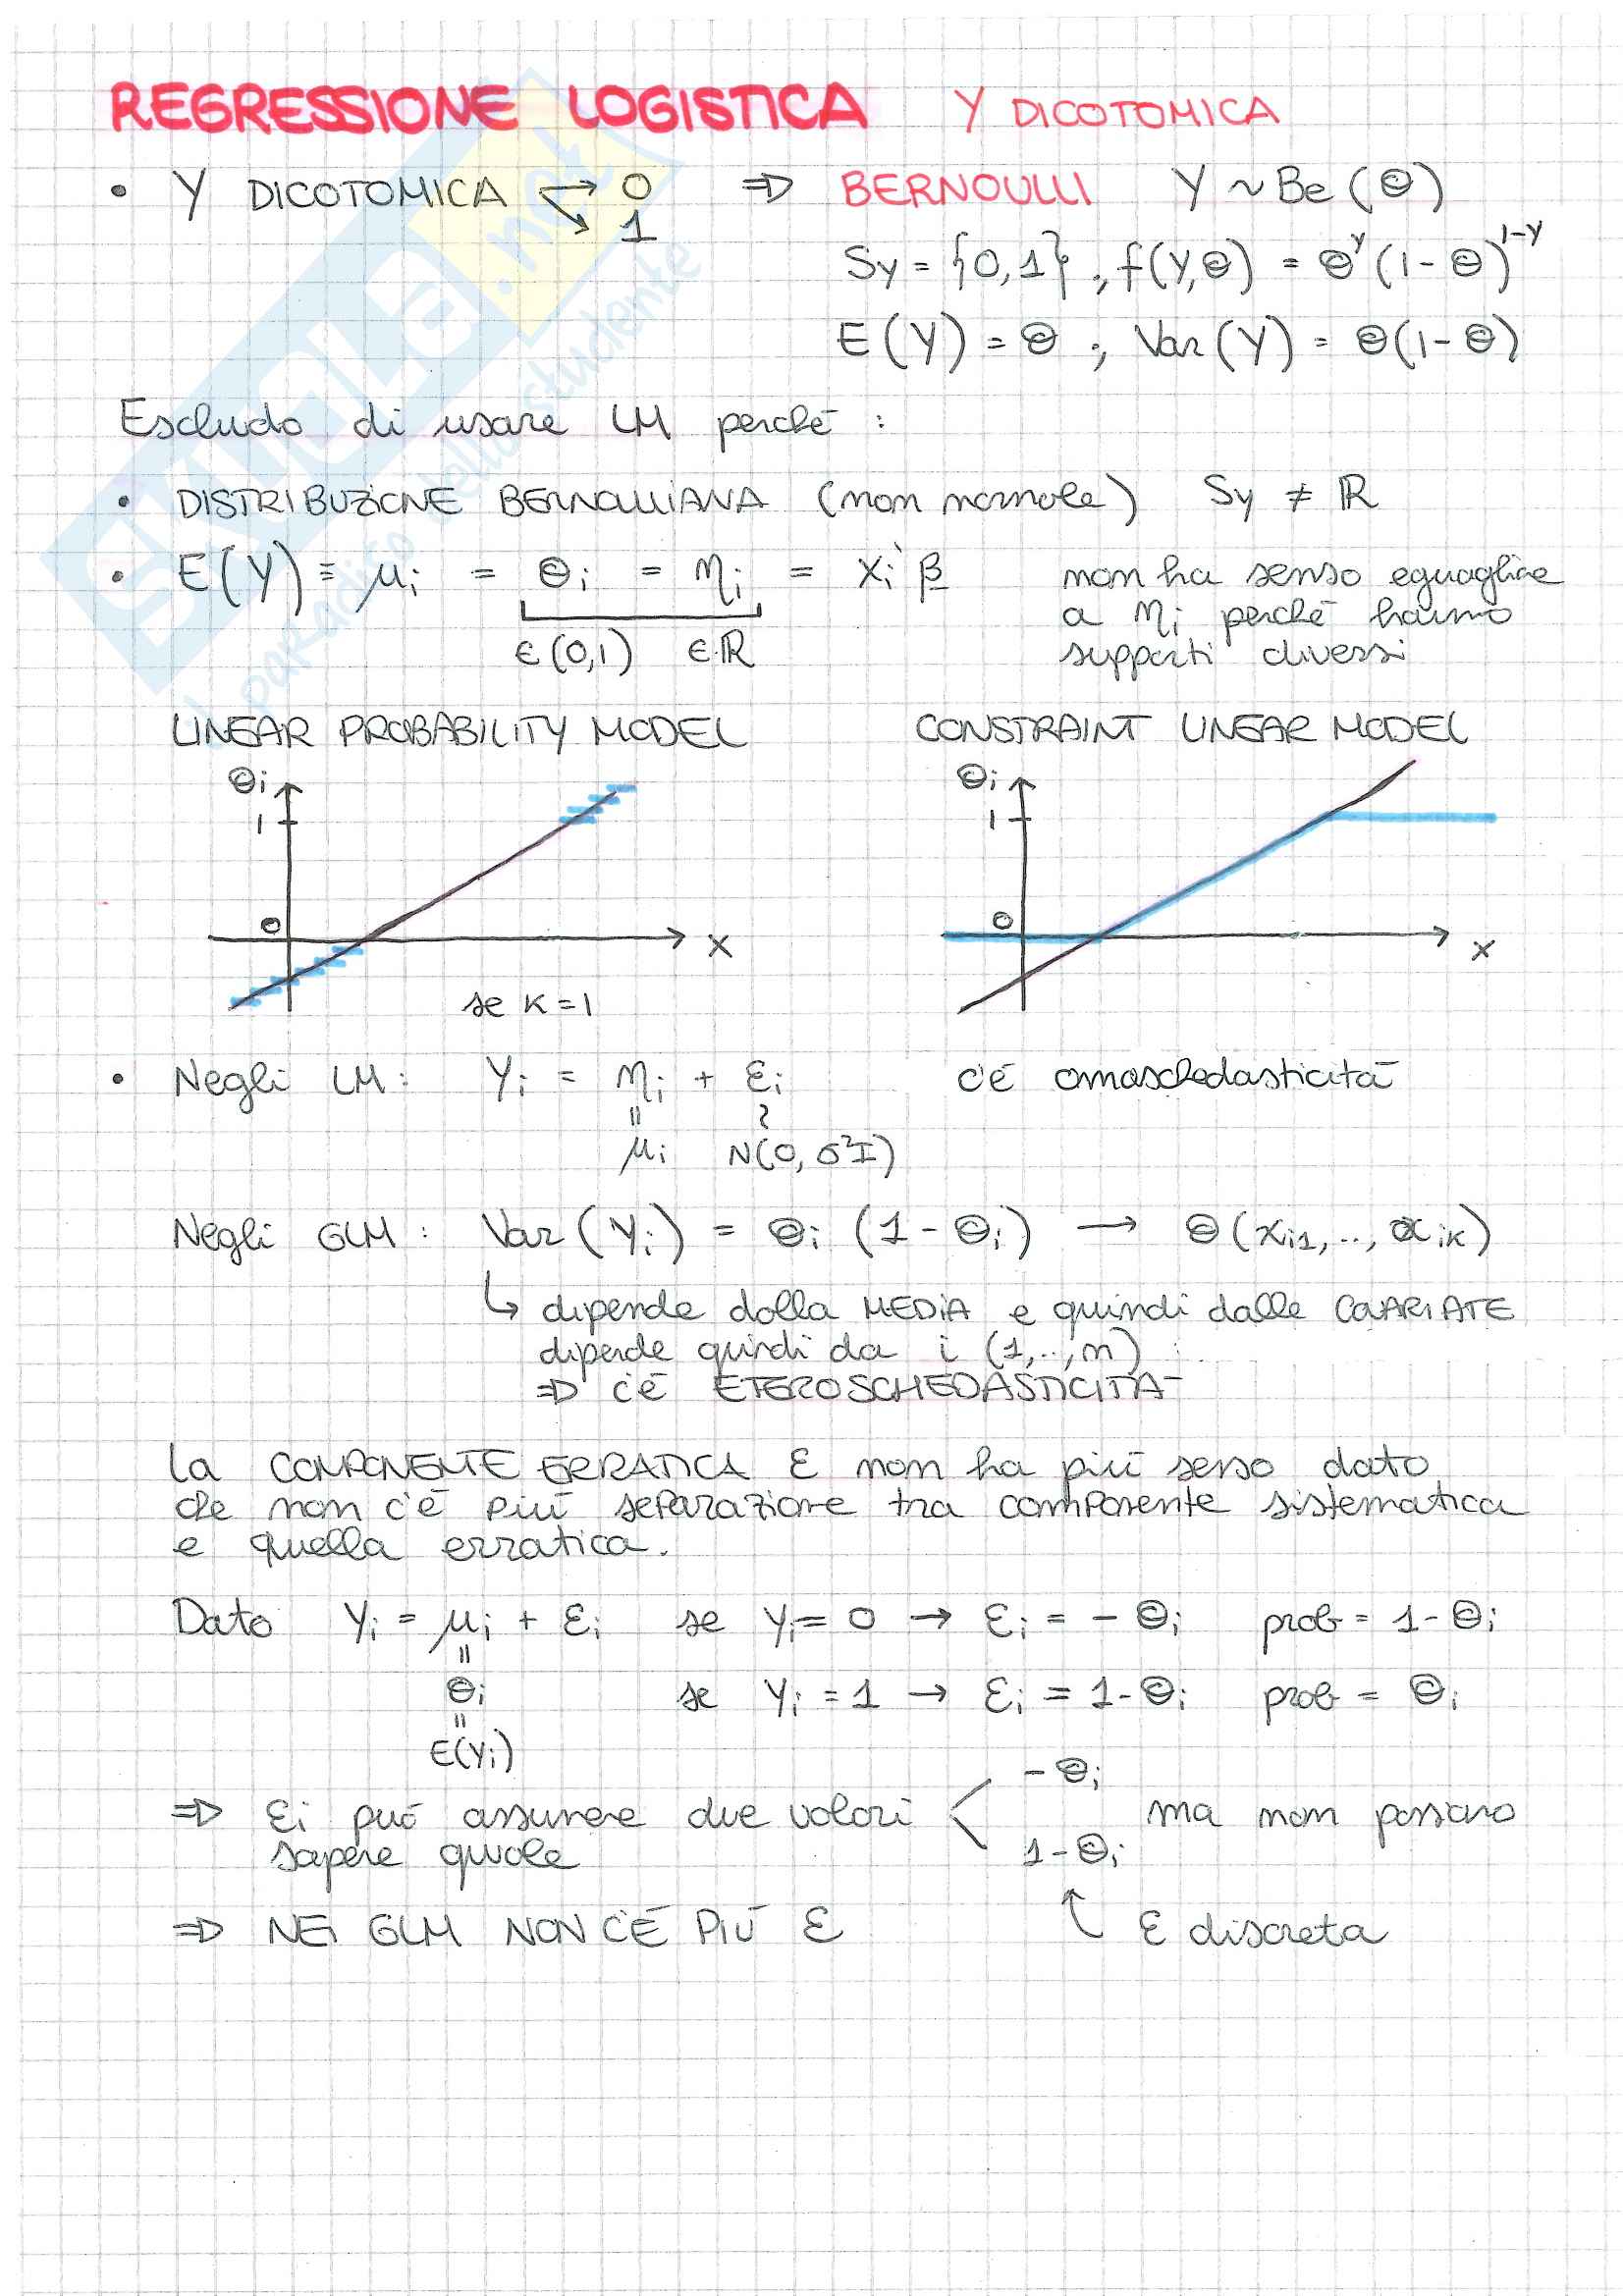 REGRESSIONE LOGISTICA Y DICOTOMICA
• Y DICOTOMICA → 0 ⇒ BERNOULLI Y ~ Be(Θ)
↘ 1
Sy = {0,1} ; f(y,Θ) = Θ^y (1-Θ)^1-y
E(Y) = Θ ; Var(Y) = Θ(1-Θ)
Escludo di usare LM perché :
• DISTRIBUZIONE BERNOULLIANA (non normale) Sy ≠ ℝ
• E(Y) = μi = Θi = ηi = xi' β non ha senso eguagliare
a ηi perché hanno
∈(0,1) ∈ℝ supporti diversi
LINEAR PROBABILITY MODEL CONSTRAINT LINEAR MODEL
Θi Θi
1 1
0 0
x x
se K=1
• Negli LM: Yi = ηi + εi c'é omoschedasticità
μi N(0, σ²I)
Negli GLM: Var(Yi) = Θi (1-Θi) → Θ(xi1,..,xik)
↳ dipende dalla MEDIA e quindi dalle COVARIATE
dipende quindi da i (1,..,n)
⇒ c'é ETEROSCHEDASTICITÀ
La COMPONENTE ERRATICA ε non ha più senso dato
che non c'é più separazione tra componente sistematica
e quella erratica.
Dato Yi = μi + εi se Yi = 0 → εi = -Θi prob = 1-Θi
Θi se Yi = 1 → εi = 1-Θi prob = Θi
E(Yi)
-Θi
⇒ εi può assumere due valori < ma non possiamo
sapere quale 1-Θi
⇒ NEI GLM NON C'É PIÙ ε ε discreta
SKUOLA.net
il paradiso dello studente